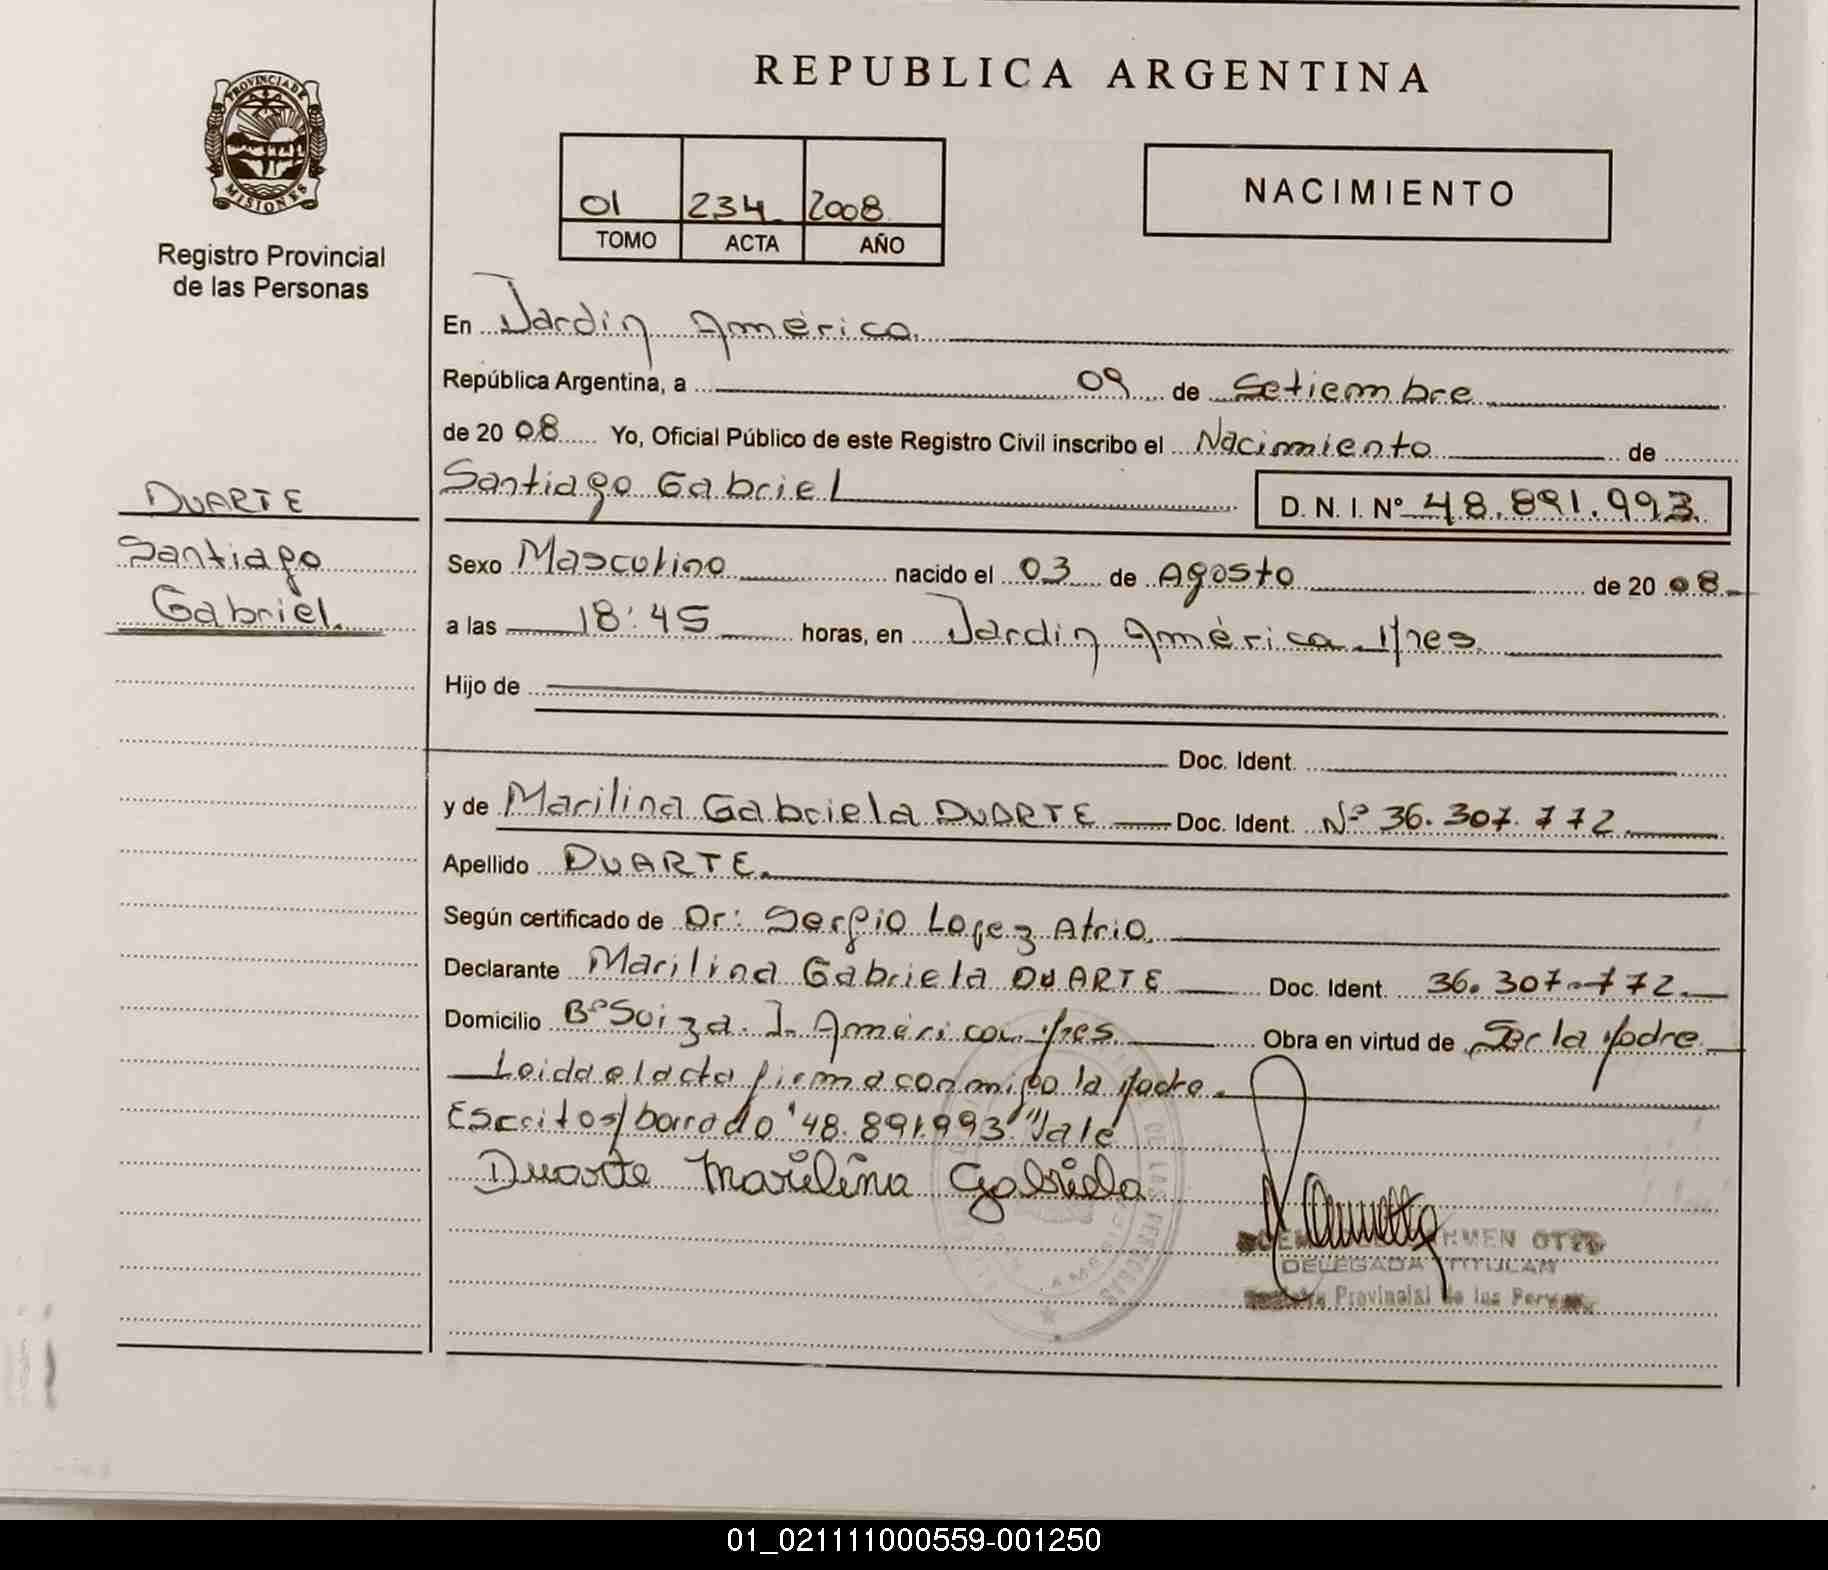 REPUBLICA ARGENTINA
PROVINCIA DE
MISIONES
Registro Provincial
de las Personas
01 234 2008
TOMO ACTA AÑO
NACIMIENTO
DUARTE
Santiago
Gabriel.
En Jardin América.
República Argentina, a 09 de Setiembre
de 20 08 Yo, Oficial Público de este Registro Civil inscribo el Nacimiento de
Santiago Gabriel D. N. I. Nº 48.891.993
Sexo Masculino nacido el 03 de Agosto de 20 08
a las 18:45 horas, en Jardin América
Hijo de
Doc. Ident.
y de Marilina Gabriela DUARTE Doc. Ident. Nº 36.307.772
Apellido DUARTE.
Según certificado de Dr: Sergio Lopez Atrio.
Declarante Marilina Gabriela DUARTE Doc. Ident. 36.307.772.
Domicilio Bº Suiza. J. América Obra en virtud de Ser la Madre
Leida el acta firma conmigo la Madre.
Escrito s/borrado "48.891.993" Vale
Duarte Marilina Gabriela
DELEGADA TITULAR
Provincial de las
01_021111000559-001250